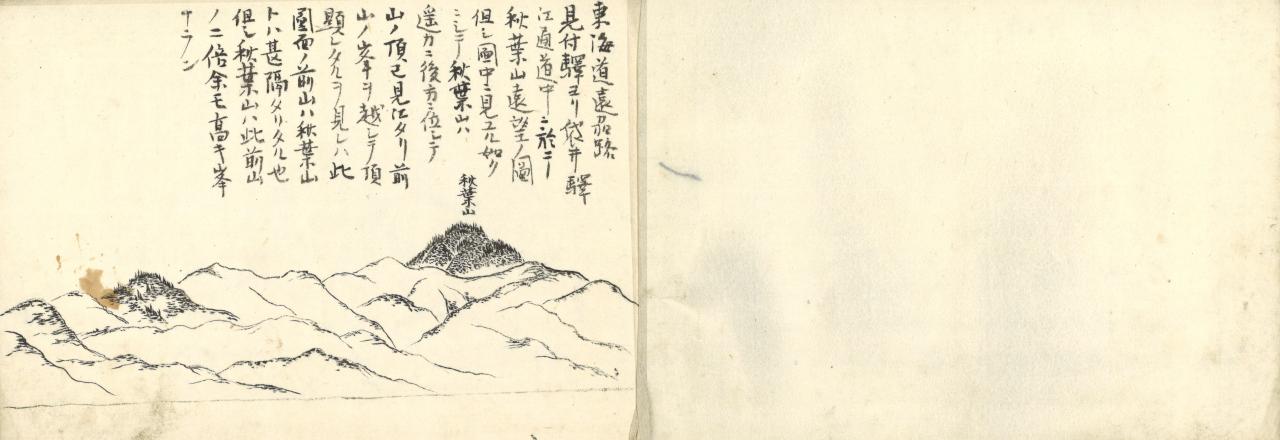 東海道遠州路
見付驛ヨリ袋井驛
江通道中ニ於ニテ
秋葉山遠望ノ圖
但シ圖中ニ見エル如ク
ニシテ秋葉山ハ
遥カニ後方ニ位シテ
山ノ頂已見江タリ前
山ノ峯ヲ越シテ頂
顕レタルヲ見レハ此
圖面ノ前山ハ秋葉山
トハ甚隔タリタル也
但シ秋葉山ハ此前山
ノ二倍余モ高キ峯
ナラン
秋葉山